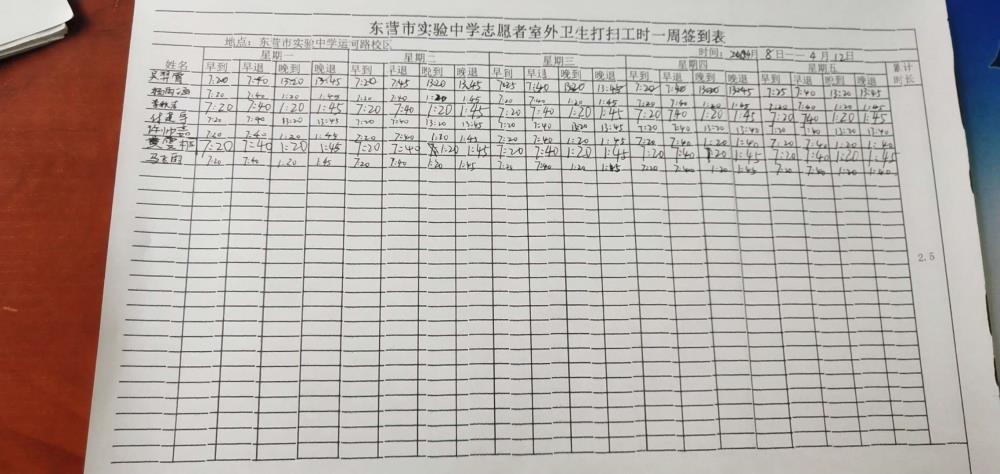 东营市实验中学志愿者室外卫生打扫工时一周签到表
地点：东营市实验中学运河路校区 时间： 4月8日——4月12日
姓名 星期一 星期二 星期三 星期四 星期五 累计时长
早到 早退 晚到 晚退 早到 早退 晚到 晚退 早到 早退 晚到 晚退 早到 早退 晚到 晚退 早到 早退 晚到 晚退
7:20 7:40 13:20 13:45 7:20 7:45 13:20 13:45 7:25 7:40 13:20 13:45 7:20 7:40 13:20 13:45 7:25 7:40 13:20 13:45
7:20 7:40 1:20 1:45 7:20 7:40 1:20 1:45 7:20 7:40 1:20 1:45 7:20 7:40 1:20 1:45 7:20 7:40 1:20 1:45
7:20 7:40 1:20 1:45 7:20 7:40 1:20 1:45 7:20 7:40 1:20 1:45 7:20 7:40 1:20 1:45 7:20 7:40 1:20 1:45
7:20 7:40 13:20 13:45 7:20 7:40 13:20 13:45 7:20 7:40 13:20 13:45 7:20 7:40 13:20 13:40 7:20 7:40 13:20 13:40
许帅志 7:20 7:40 1:20 1:45 7:20 7:40 1:20 1:45 7:20 7:40 1:20 1:40 7:20 7:40 1:20 1:40 7:20 7:40 1:20 1:40
7:20 7:40 1:20 1:45 7:20 7:40 1:20 1:45 7:20 7:40 1:20 1:45 7:20 7:40 1:20 1:45 7:20 7:40 1:20 1:45
7:20 7:40 1:20 1:45 7:20 7:40 1:20 1:45 7:20 7:40 1:20 1:45 7:20 7:40 1:20 1:40 7:20 7:40 1:20 1:40
2.5